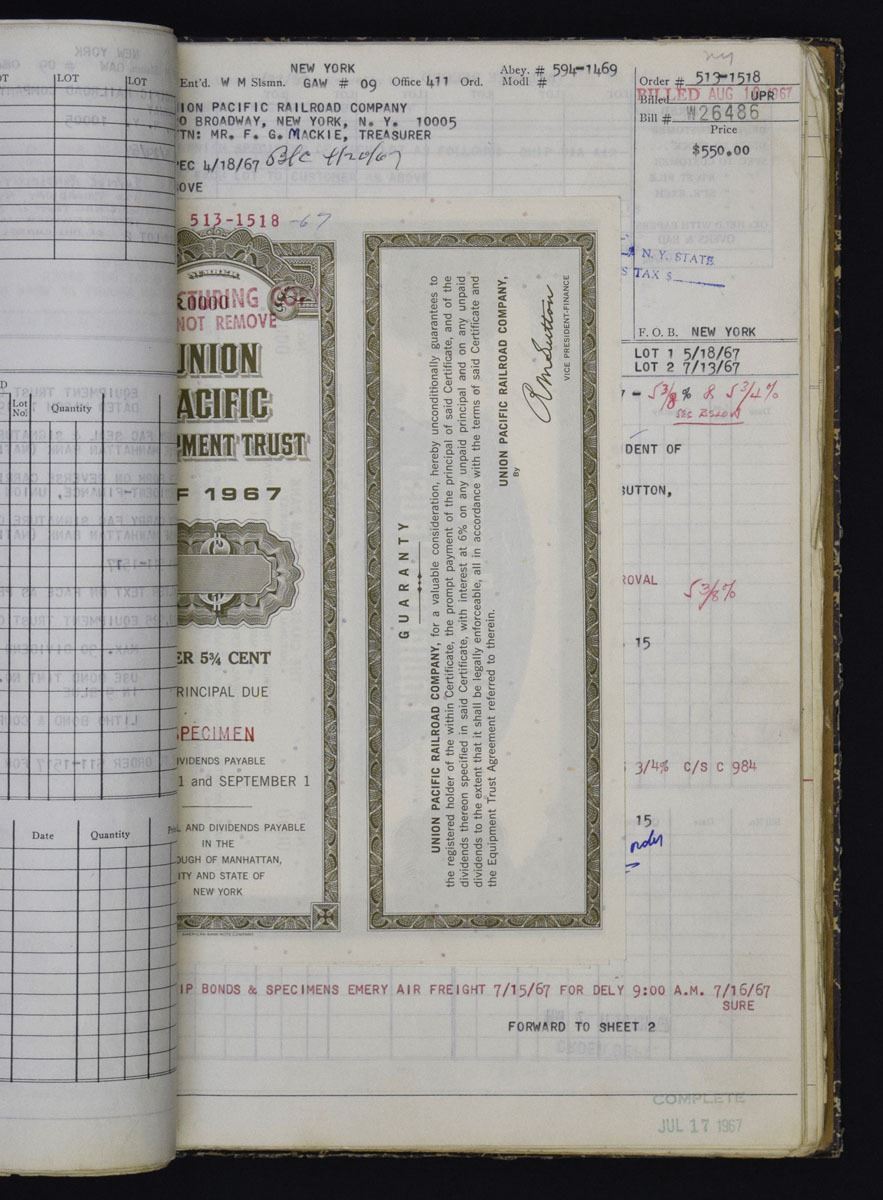 NEW YORK
Ent'd. W M Slsmn. GAW # 09 Office 411 Ord.
Abey. # 594-1469
Modl #
Order # 513-1518
BILLED AUG
1967
Billed UPR
Bill # W26486
Price
$550.00
ION PACIFIC RAILROAD COMPANY
O BROADWAY, NEW YORK, N. Y. 10005
TN: MR. F. G. MACKIE, TREASURER
PEC 4/18/67
OVE
513-1518 -67
N. Y. STATE
TAX $
F. O. B. NEW YORK
LOT 1 5/18/67
LOT 2 7/13/67
5 3/8 % & 5 3/4 %
SEC BELOW
DENT OF
SUTTON,
ROVAL
5 3/8 %
15
3/4% C/S C 984
15
order
LOT
LOT
Lot No.
Quantity
Date
Quantity
NUMBER
0000
TURING CO
NOT REMOVE
UNION
ACIFIC
PMENT TRUST
F 1967
ER 5¾ CENT
RINCIPAL DUE
SPECIMEN
IVIDENDS PAYABLE
1 and SEPTEMBER 1
AND DIVIDENDS PAYABLE
IN THE
OUGH OF MANHATTAN,
ITY AND STATE OF
NEW YORK
AMERICAN BANK NOTE COMPANY
GUARANTY
UNION PACIFIC RAILROAD COMPANY, for a valuable consideration, hereby unconditionally guarantees to
the registered holder of the within Certificate, the prompt payment of the principal of said Certificate, and of the
dividends thereon specified in said Certificate, with interest at 6% on any unpaid principal and on any unpaid
dividends to the extent that it shall be legally enforceable, all in accordance with the terms of said Certificate and
the Equipment Trust Agreement referred to therein.
UNION PACIFIC RAILROAD COMPANY,
By
RMSutton
VICE PRESIDENT-FINANCE
IP BONDS & SPECIMENS EMERY AIR FREIGHT 7/15/67 FOR DELY 9:00 A.M. 7/16/67
SURE
FORWARD TO SHEET 2
COMPLETE
JUL 17 1967